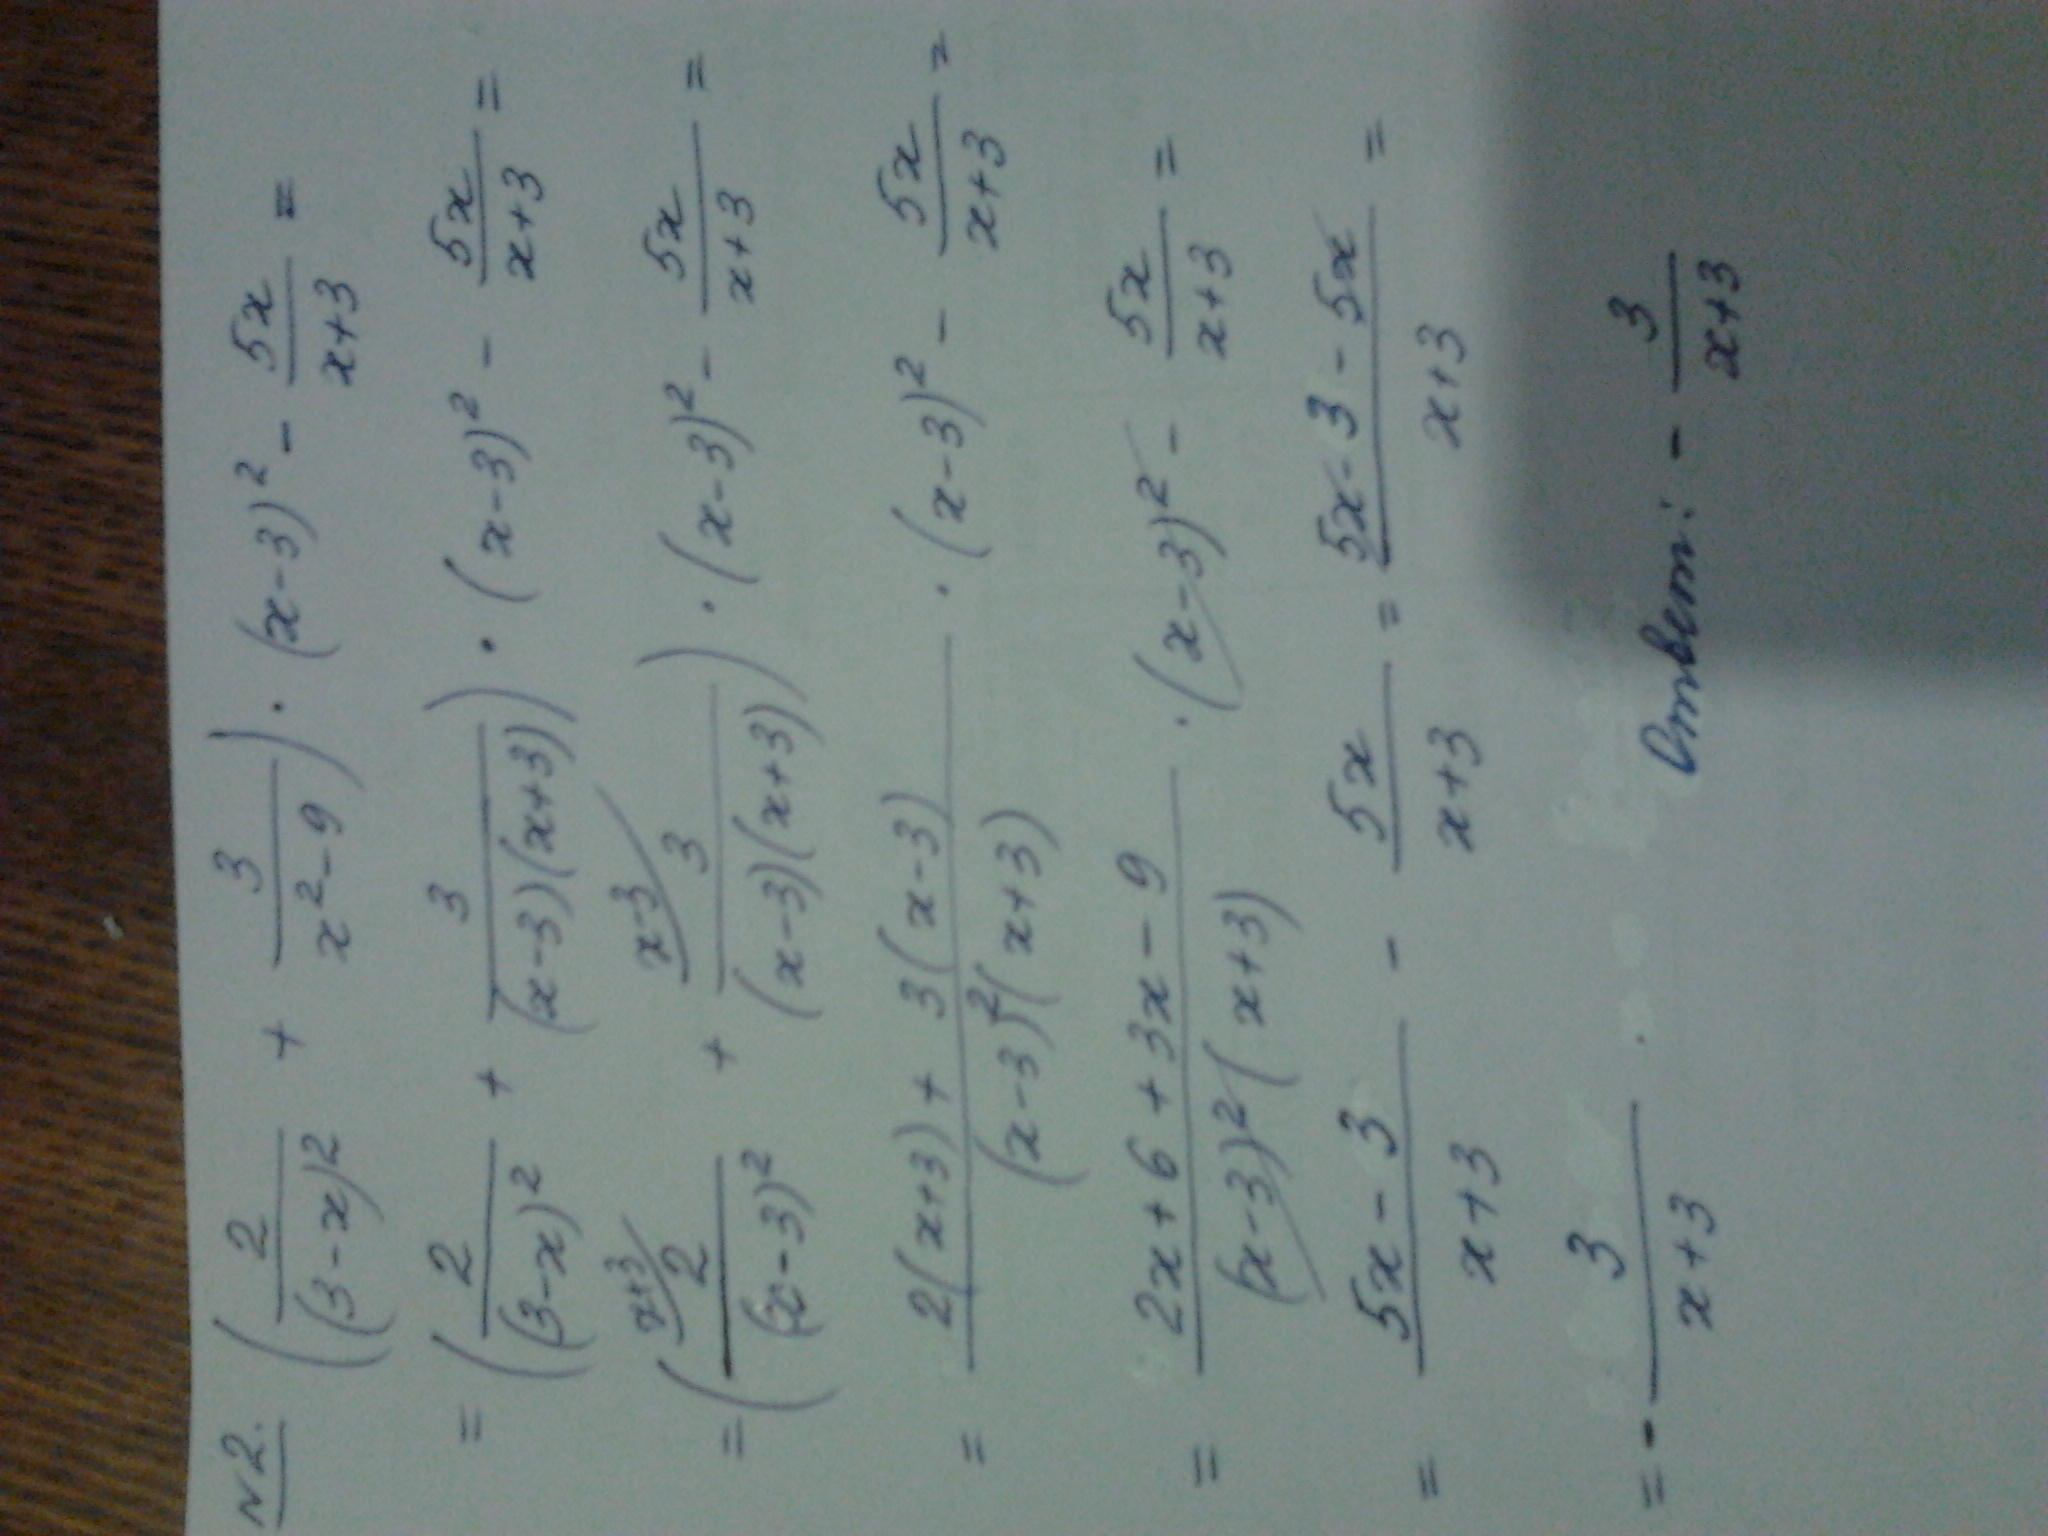 N2. (2/(3-x)² + 3/(x²-9)) · (x-3)² - 5x/(x+3) =
= (2/(3-x)² + 3/((x-3)(x+3))) · (x-3)² - 5x/(x+3) =
= (x+3/ 2/(x-3)² + x-3/ 3/((x-3)(x+3))) · (x-3)² - 5x/(x+3) =
= (2(x+3) + 3(x-3))/((x-3)²(x+3)) · (x-3)² - 5x/(x+3) =
= (2x+6+3x-9)/((x-3)²(x+3)) · (x-3)² - 5x/(x+3) =
= (5x-3)/(x+3) - 5x/(x+3) = (5x-3-5x)/(x+3) =
= - 3/(x+3). Ответ: - 3/(x+3)